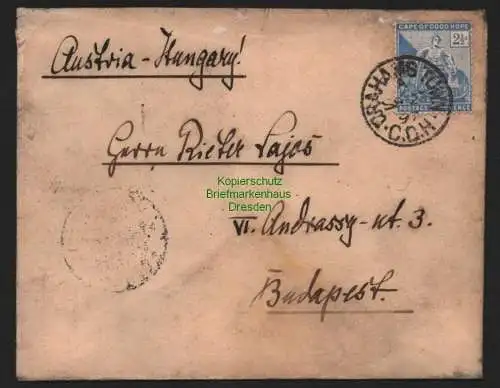 Austria - Hungary!
CAPE OF GOOD HOPE
2½
GRAHAMSTOWN
97
C.G.H.
Herrn Rieter Lajos
Kopierschutz
Briefmarkenhaus
Dresden
VI. Andrassy-ut. 3.
Budapest.